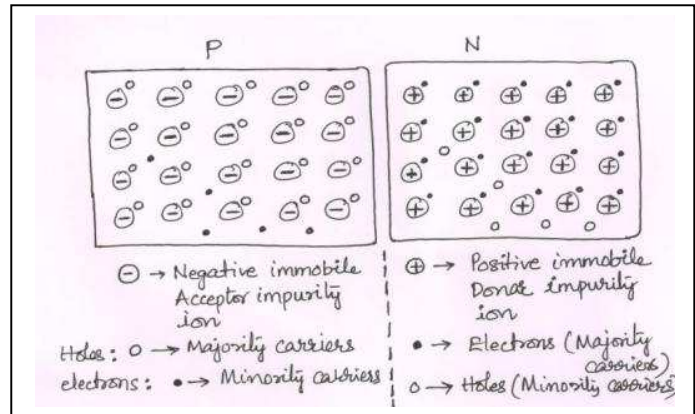 P
N
⊖ → Negative immobile
Acceptor impurity
ion
Holes: o → Majority carriers
electrons: • → Minority carriers
⊕ → Positive immobile
Donar impurity
ion
• → Electrons (Majority
carriers)
o → Holes (Minority carriers)